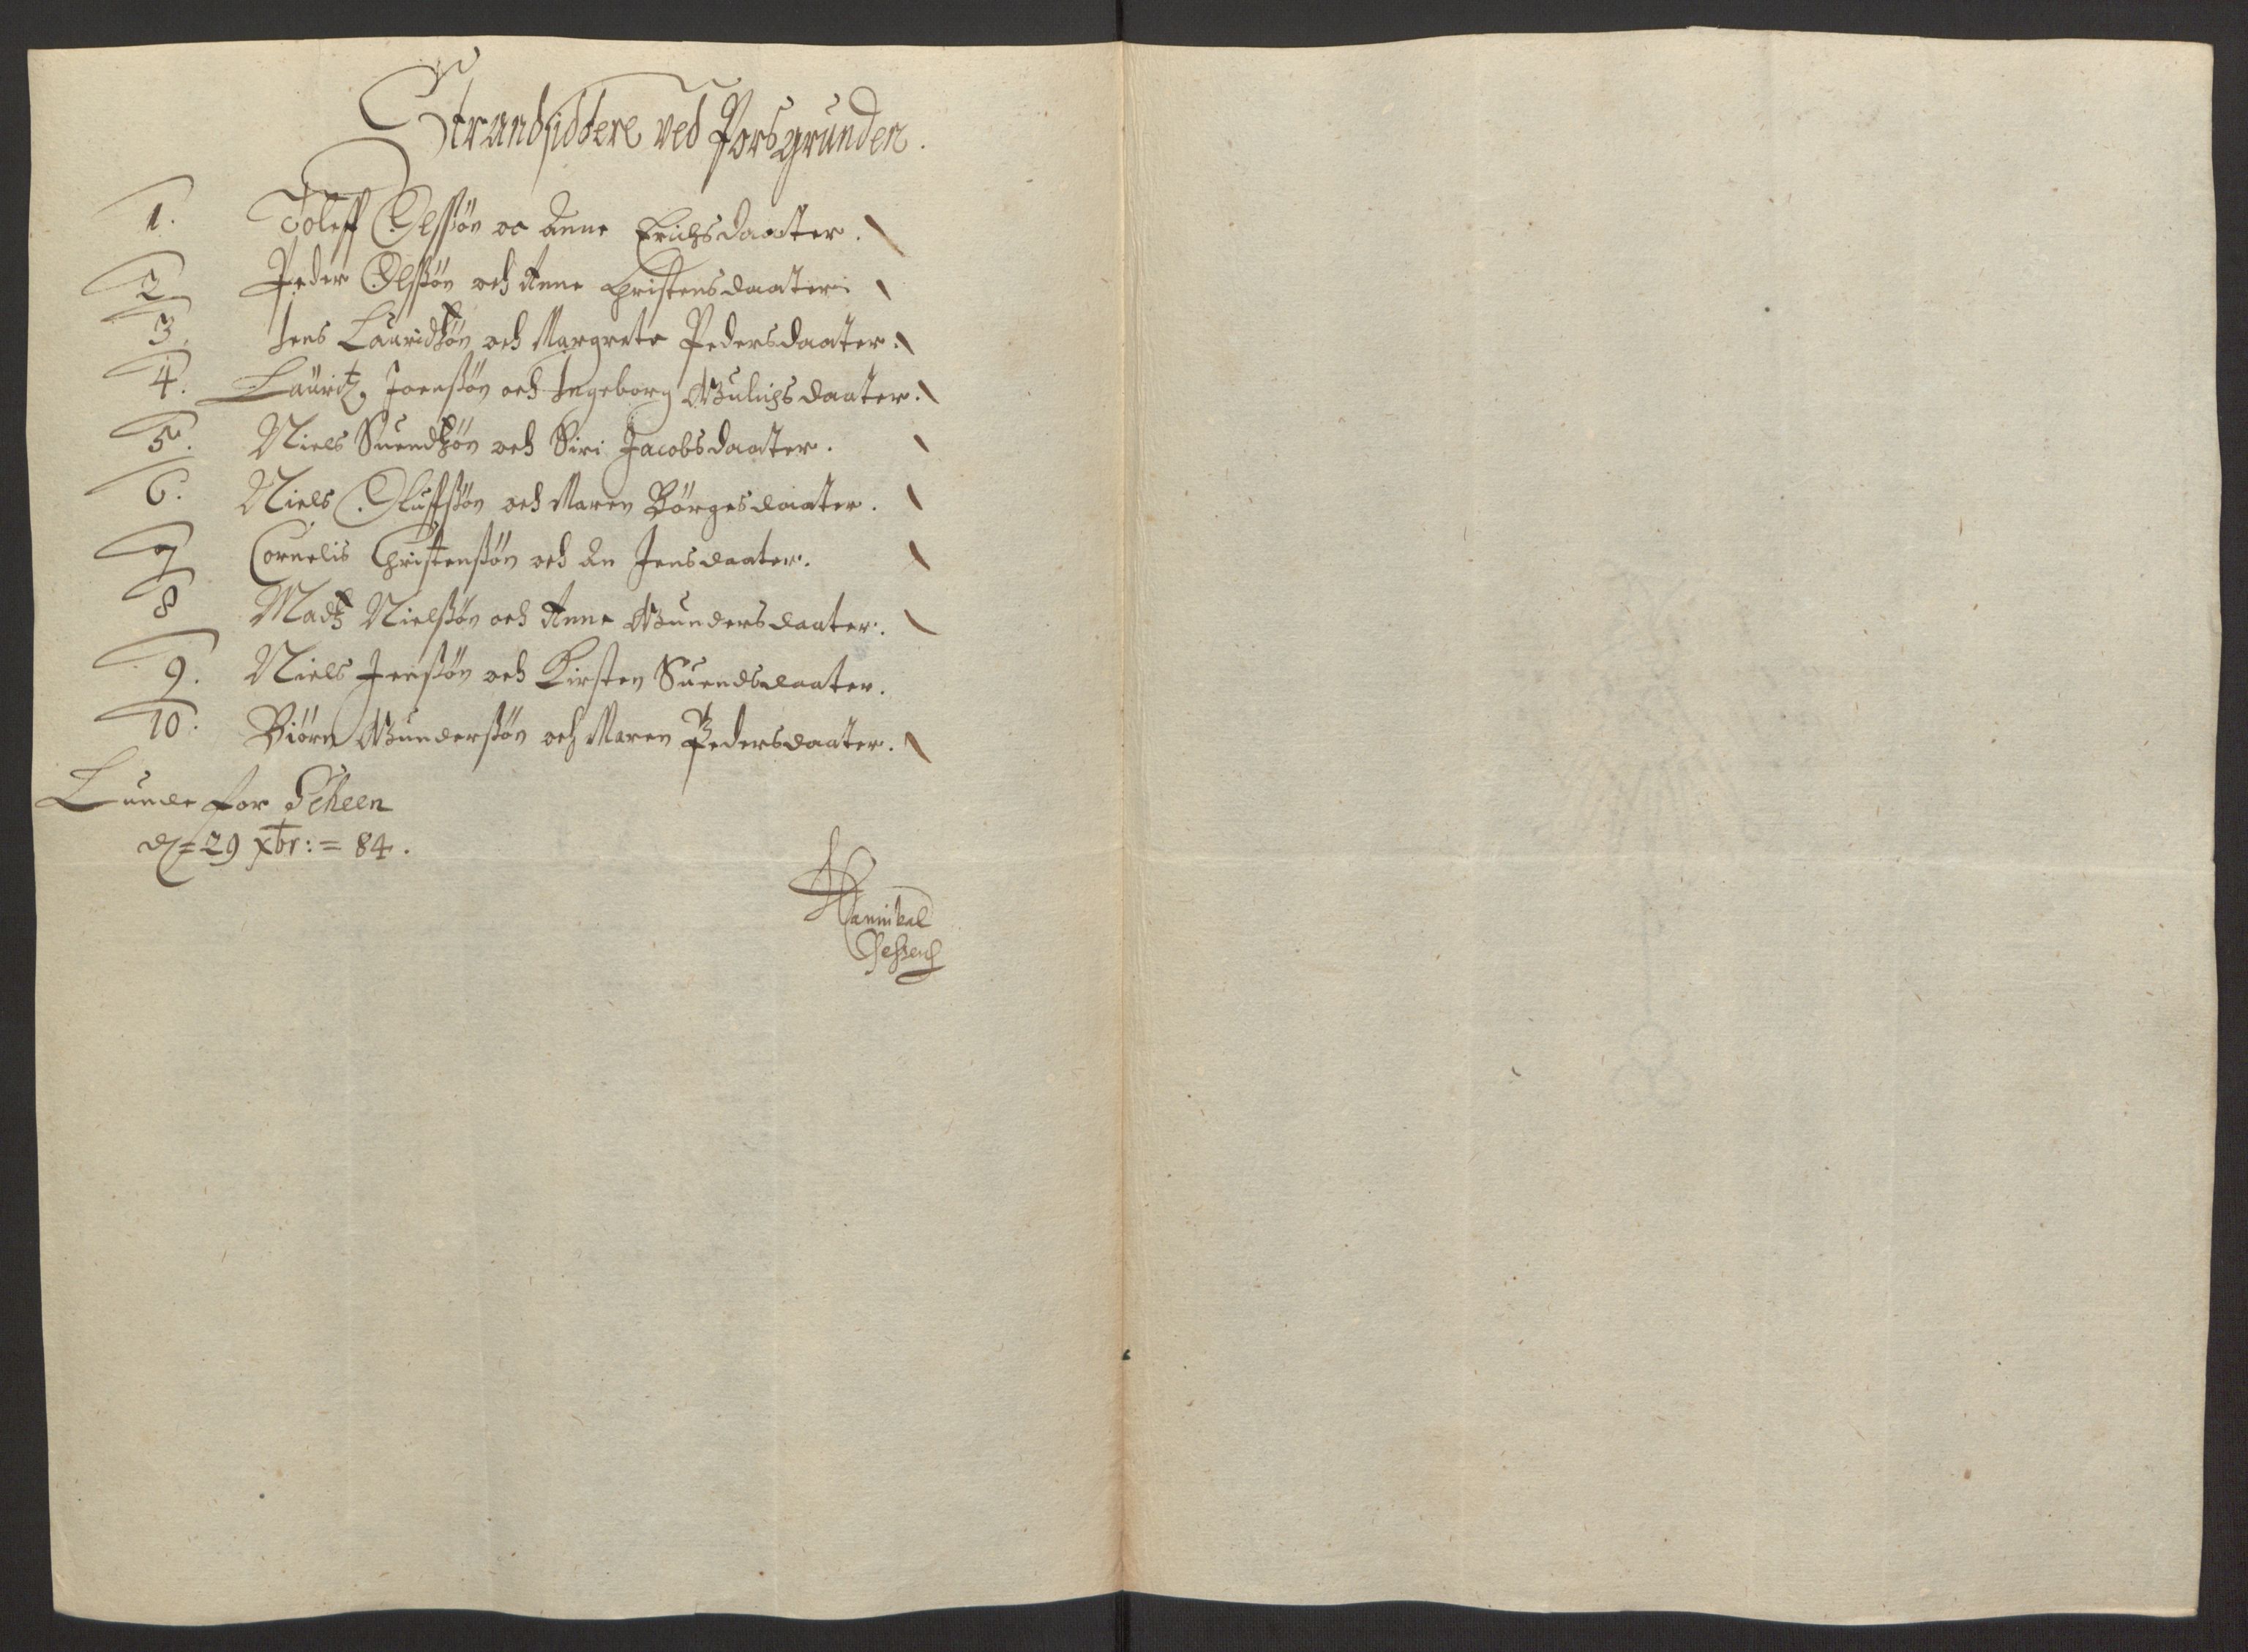 Strandsiddere ved Porsgrunden.
1. Toleff Olssøn oc Anne Erichsdaater.
2 Peder Olssøn och Anne Christensdaater
3. Jens Lauridtzøn och Margrete Pedersdaater.
4. Lauritz Joenssøn och Ingeborg Gulichsdaater.
5. Niels Suendtzøn och Siri Jacobsdaater.
6. Niels Oluffssøn och Maren Börgesdaater.
7 Cornelis Christenssøn och An Jensdaater.
8 Madtz Nielssøn och Anne Gundersdaater.
9. Niels Jenssøn och Kirsten Suendsdaater.
10. Biörn Gunderssøn och Maren Pedersdaater.
Lunde for Scheen
d = 29 xbr: = 84.
Hannibal